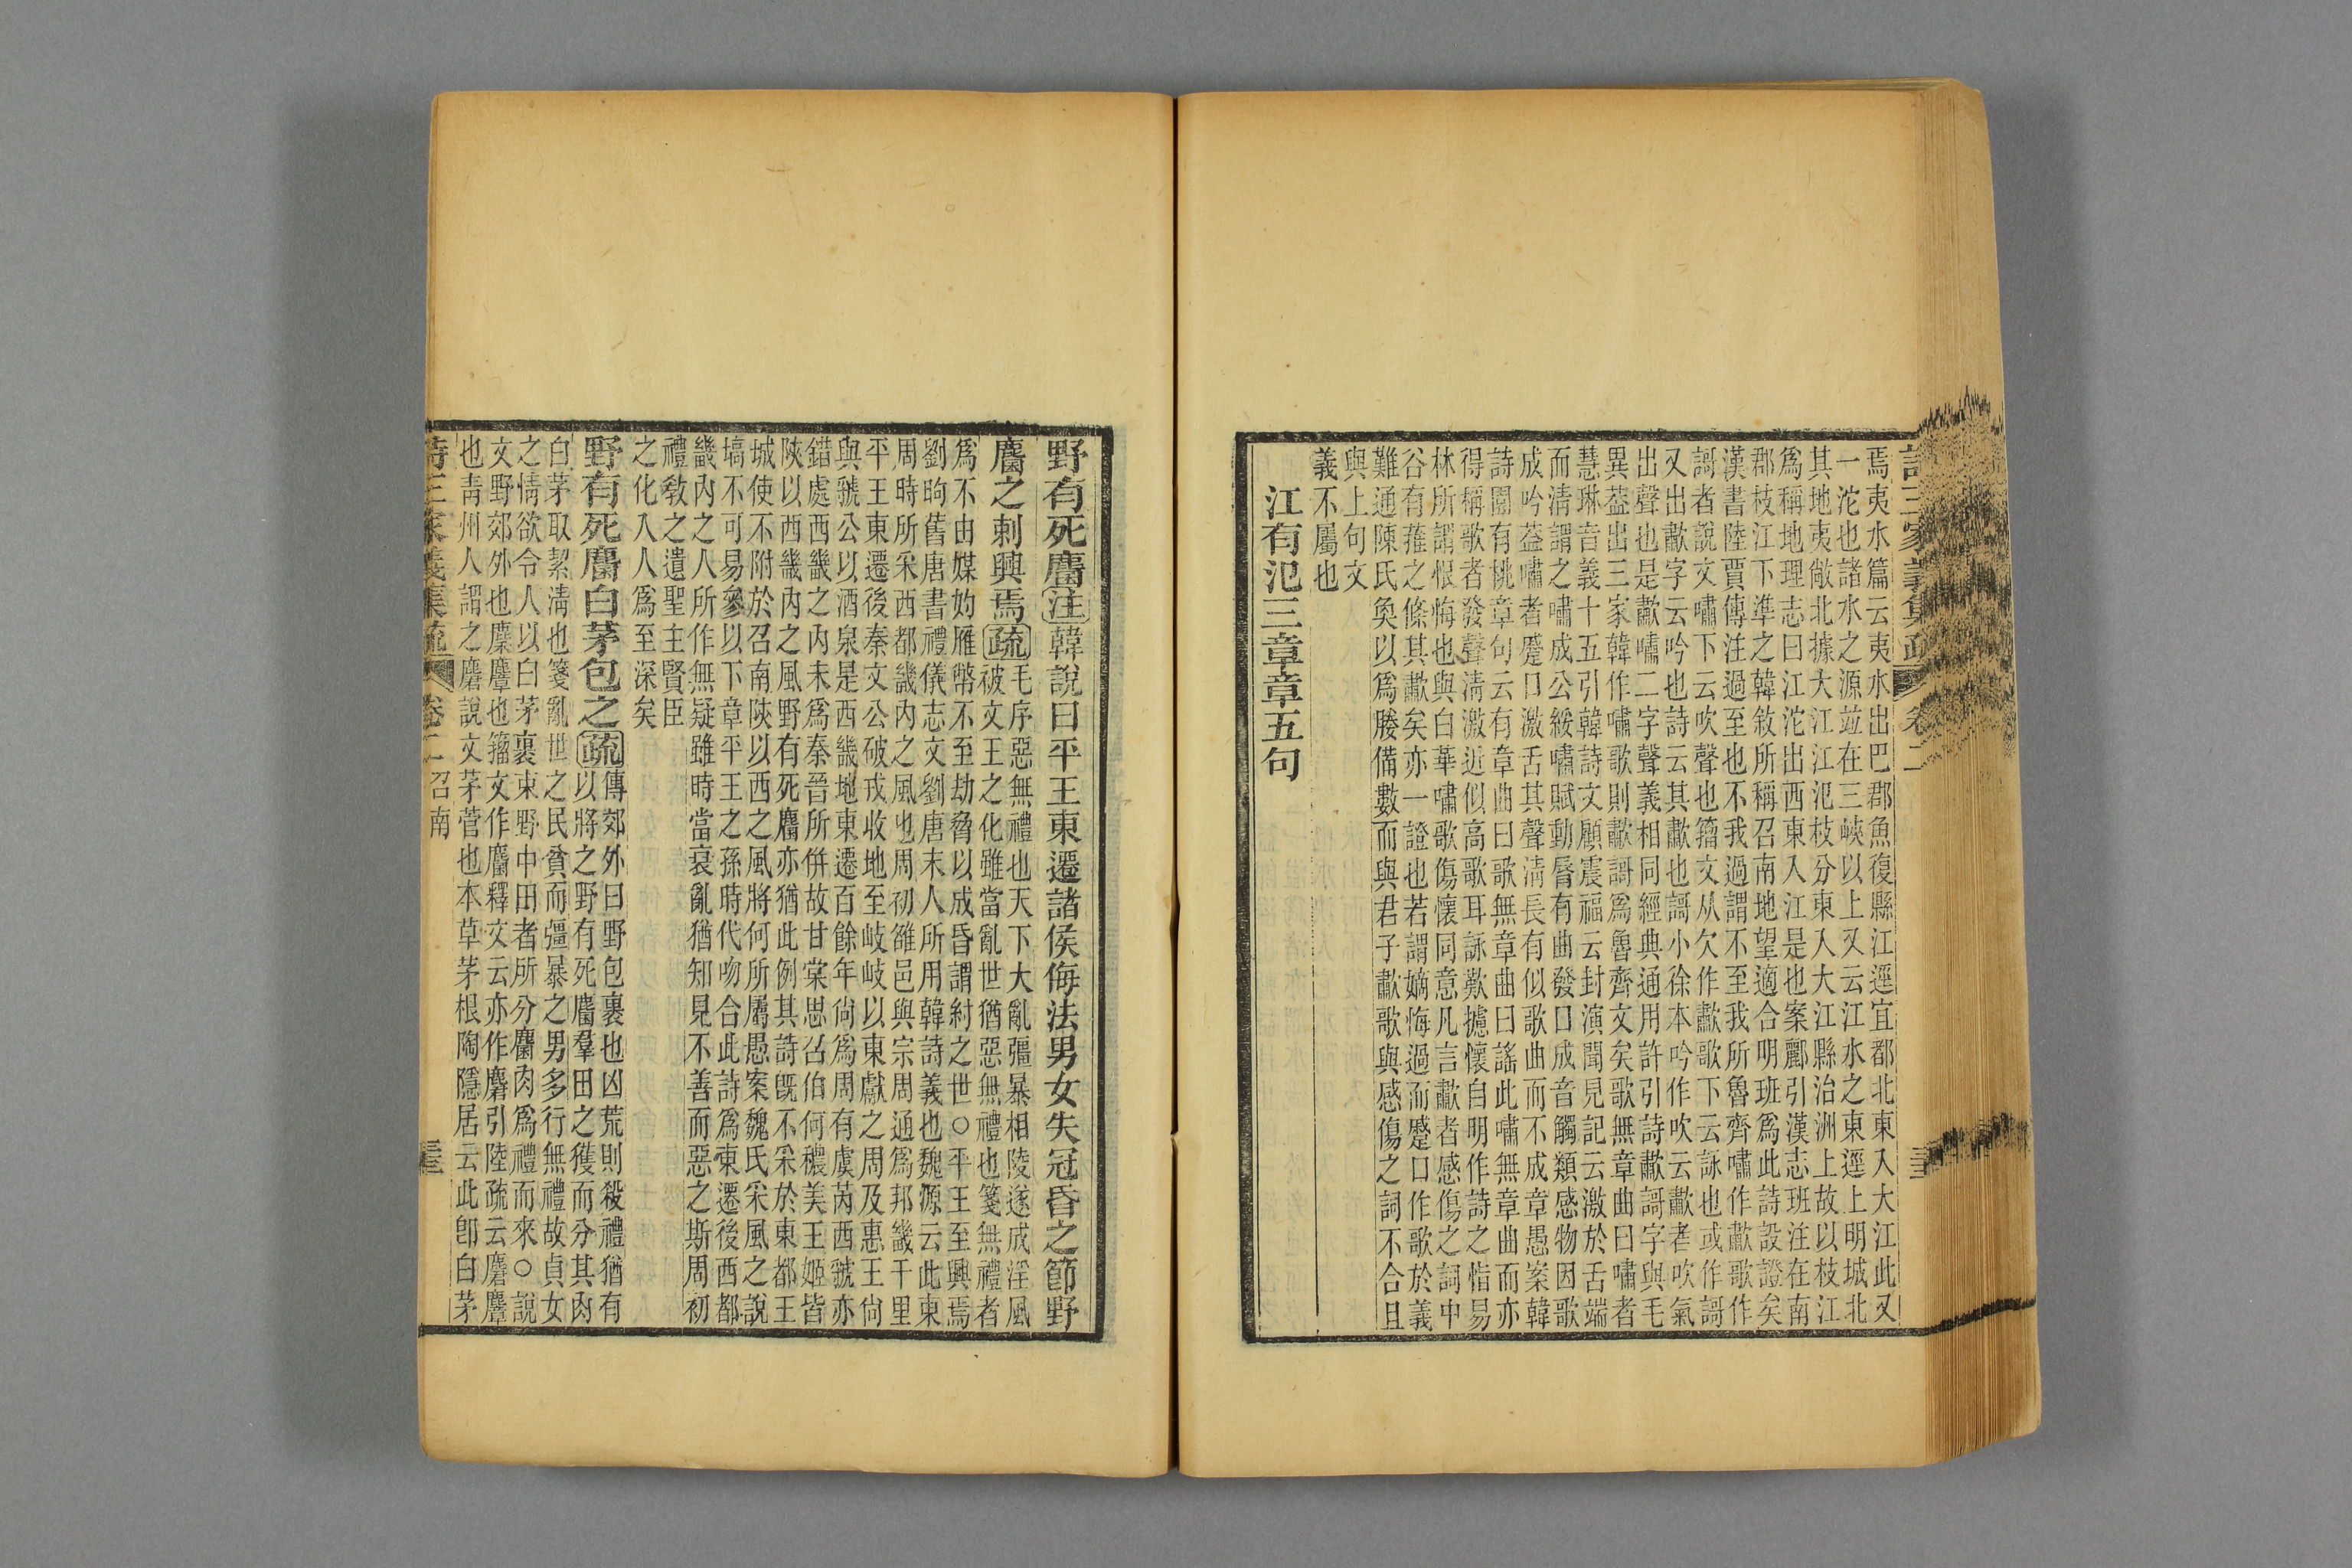 詩三家義集疏 卷二
焉夷水篇云夷水出巴郡魚復縣江逕宜都北東入大江此又
一沱也諸水之源竝在三峽以上又云江水之東逕上明城北
其地夷敞北據大江江汜枝分東入大江縣治洲上故以枝江
爲稱地理志曰江沱出西東入江是也案酈引漢志班注在南
郡枝江下準之韓敘所稱召南地望適合明班爲此詩設證矣
漢書陸賈傳注過至也不我過謂不至我所魯齊嘯作歗歌作
謌者說文嘯下云吹聲也籀文从欠作歗歌下云詠也或作謌
又出歗字云吟也詩云其歗也謌小徐本吟作吹云歗者吹氣
出聲也是歗嘯二字聲義相同經典通用許引詩歗謌字與毛
異葢出三家韓作嘯歌則歗謌爲魯齊文矣歌無章曲曰嘯者
慧琳音義十五引韓詩文顧震福云封演聞見記云激於舌端
而清謂之嘯成公綏嘯賦動脣有曲發口成音觸類感物因歌
成吟葢嘯者蹙口激舌其聲清長有似歌曲而不成章愚案韓
詩園有桃章句云有章曲曰歌無章曲曰謠此嘯無章曲而亦
得稱歌者發聲清激近似高歌耳詠歎攄懷自明作詩之恉易
林所謂恨悔也與白華嘯歌傷懷同意凡言歗者感傷之詞中
谷有蓷之條其歗矣亦一證也若謂嫡悔過而蹙口作歌於義
難通陳氏奐以爲媵備數而與君子歗歌與感傷之詞不合且
與上句文
義不屬也
江有汜三章章五句
野有死麕注韓說曰平王東遷諸侯侮法男女失冠昏之節野
麕之刺興焉疏毛序惡無禮也天下大亂彊暴相陵遂成淫風
被文王之化雖當亂世猶惡無禮也箋無禮者
爲不由媒妁雁幣不至劫脅以成昏謂紂之世○平王至興焉
劉昫舊唐書禮儀志文劉唐末人所用韓詩義也魏源云此東
周時所采西都畿內之風也周初雒邑與宗周通爲邦畿千里
平王東遷後秦文公破戎收地至岐岐以東獻之周及惠王尙
與虢公以酒泉是西畿地東遷百餘年尙爲周有虞芮西虢亦
錯處西畿之內未爲秦晉所併故甘棠思召伯何穠美王姬皆
陝以西畿內之風野有死麕亦猶此例其詩旣不采於東都王
城使不附於召南陝以西之風將何所屬愚案魏氏采風之說
塙不可易參以下章平王之孫時代吻合此詩爲東遷後西都
畿內之人所作無疑雖時當衰亂猶知見不善而惡之斯周初
禮敎之遺聖主賢臣
之化入人爲至深矣
野有死麕白茅包之疏傳郊外曰野包裹也凶荒則殺禮猶有
以將之野有死麕羣田之獲而分其肉
白茅取絜清也箋亂世之民貧而彊暴之男多行無禮故貞女
之情欲令人以白茅裹束野中田者所分麕肉爲禮而來○說
文野郊外也麇麞也籀文作麕釋文云亦作麏引陸疏云麏麞
也青州人謂之麏說文茅菅也本草茅根陶隱居云此卽白茅
詩三家義集疏 卷二召南 三